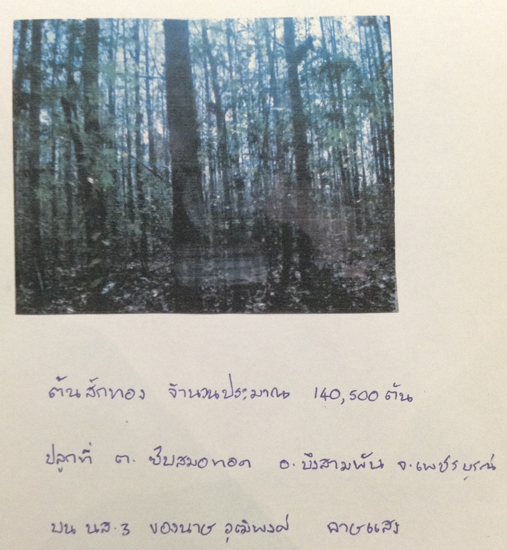 ต้นสักทอง จำนวนประมาณ 140,500 ต้น
ปลูกที่ ต. ซับสมอทอด อ. บึงสามพัน จ. เพชรบูรณ์
บน นส.3 ของนาย วุฒิพงศ์ ลายแสง